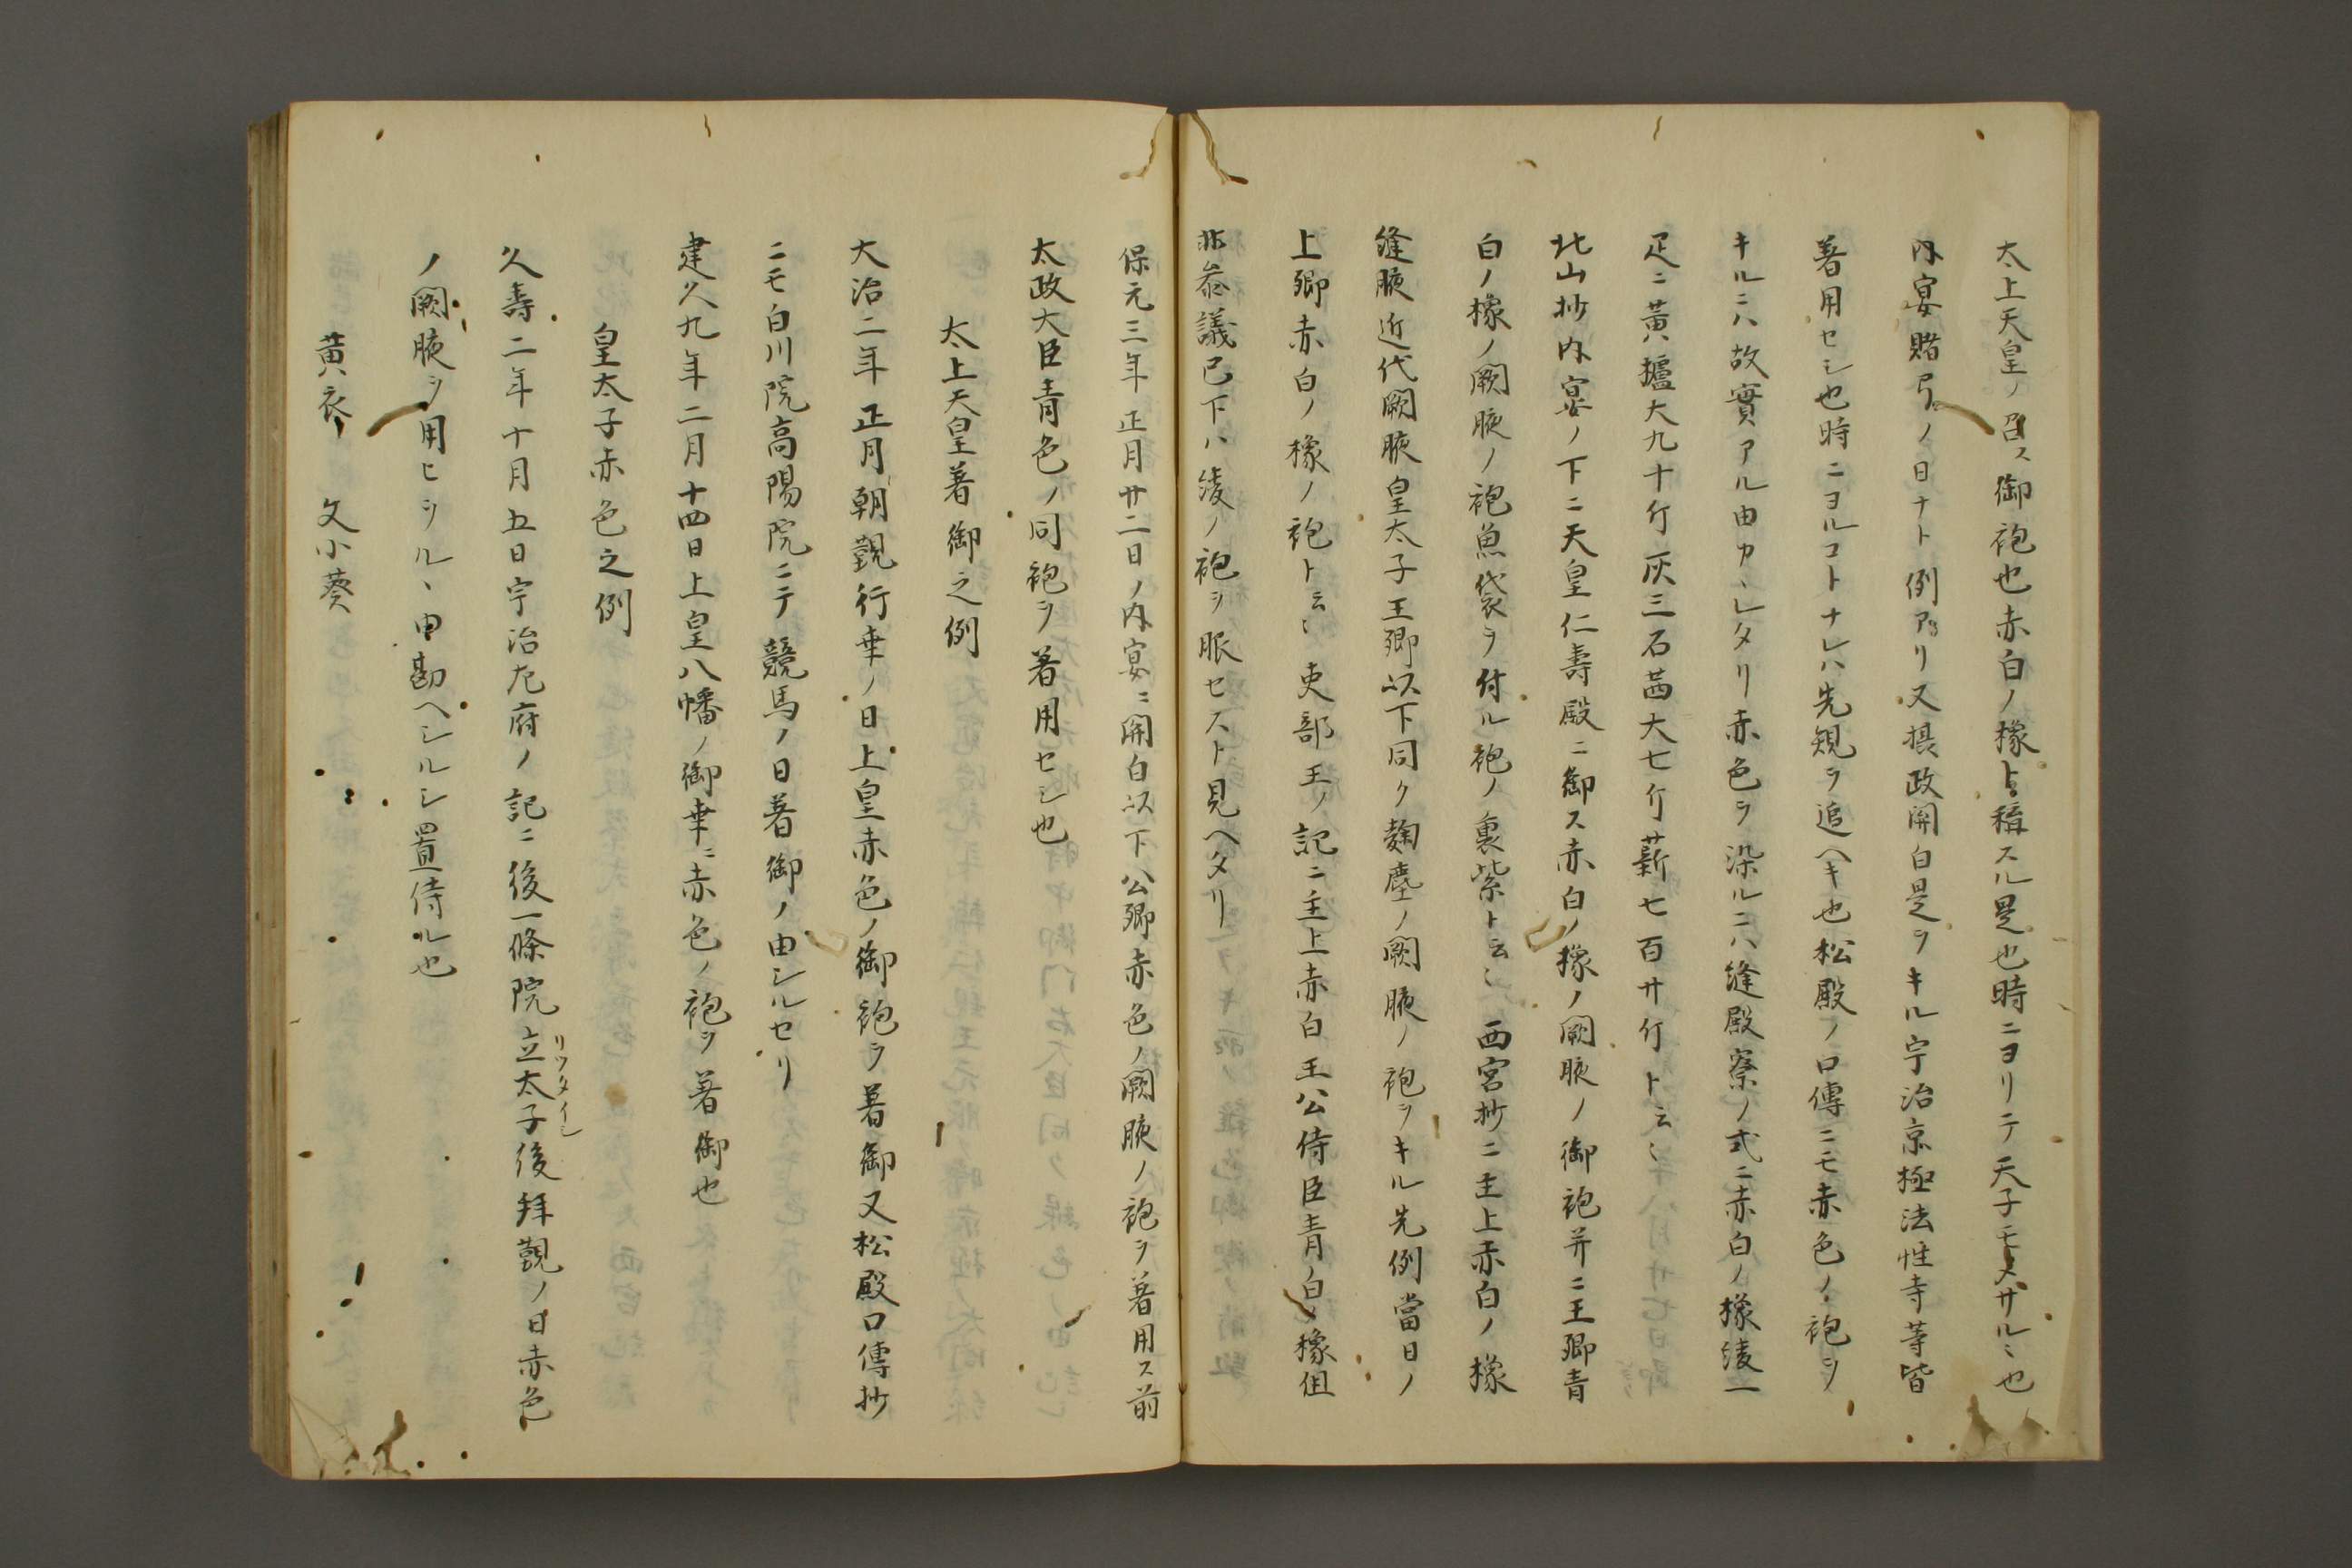 太上天皇ノ召ス御袍也赤白ノ橡ト稱スル是也時ニヨリテ天子モメサルヽ也
内宴賭弓ノ日ナト例アリ又摂政関白是ヲキル宇治京極法性寺等皆
著用セシ也時ニヨルコトナレハ先規ヲ追ヘキ也松殿ノ口傳ニモ赤色ノ袍ヲ
キルニハ故實アル由カヽレタリ赤色ヲ染ルニハ縫殿寮ノ式ニ赤白ノ橡綾一
疋ニ黄櫨大九十斤灰三石茜大七斤薪七百廿斤ト云〻
北山抄内宴ノ下ニ天皇仁壽殿ニ御ス赤白ノ橡ノ闕腋ノ御袍并ニ王卿青
白ノ橡ノ闕腋ノ袍魚袋ヲ付ル袍ノ裏紫ト云〻西宮抄ニ主上赤白ノ橡
縫腋近代闕腋皇太子王卿以下同ク麹塵ノ闕腋ノ袍ヲキル先例當日ノ
上卿赤白ノ橡ノ袍ト云〻吏部王ノ記ニ主上赤白王公侍臣青白ノ橡但
非参議已下ハ綾ノ袍ヲ服セスト見ヘタリ
保元三年正月廿二日ノ内宴ニ関白以下公卿赤色ノ闕腋ノ袍ヲ著用ス前
太政大臣青色ノ同袍ヲ著用セシ也
太上天皇著御之例
大治二年正月朝覲行幸ノ日上皇赤色ノ御袍ヲ著御又松殿口傳抄
ニモ白川院高陽院ニテ競馬ノ日著御ノ由シルセリ
建久九年二月十四日上皇八幡ノ御幸ニ赤色ノ袍ヲ著御也
皇太子赤色之例
久壽二年十月五日宇治左府ノ記ニ後一條院立太子リツタイシ後拜覲ノ日赤色
ノ闕腋ヲ用ヒラルヽ由勘ヘシルシ置侍ル也
黄衣　文小葵